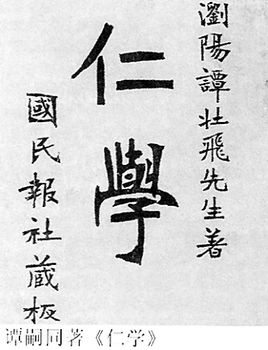 瀏陽譚壯飛先生著
仁學
國民報社蔵板
谭嗣同著《仁学》